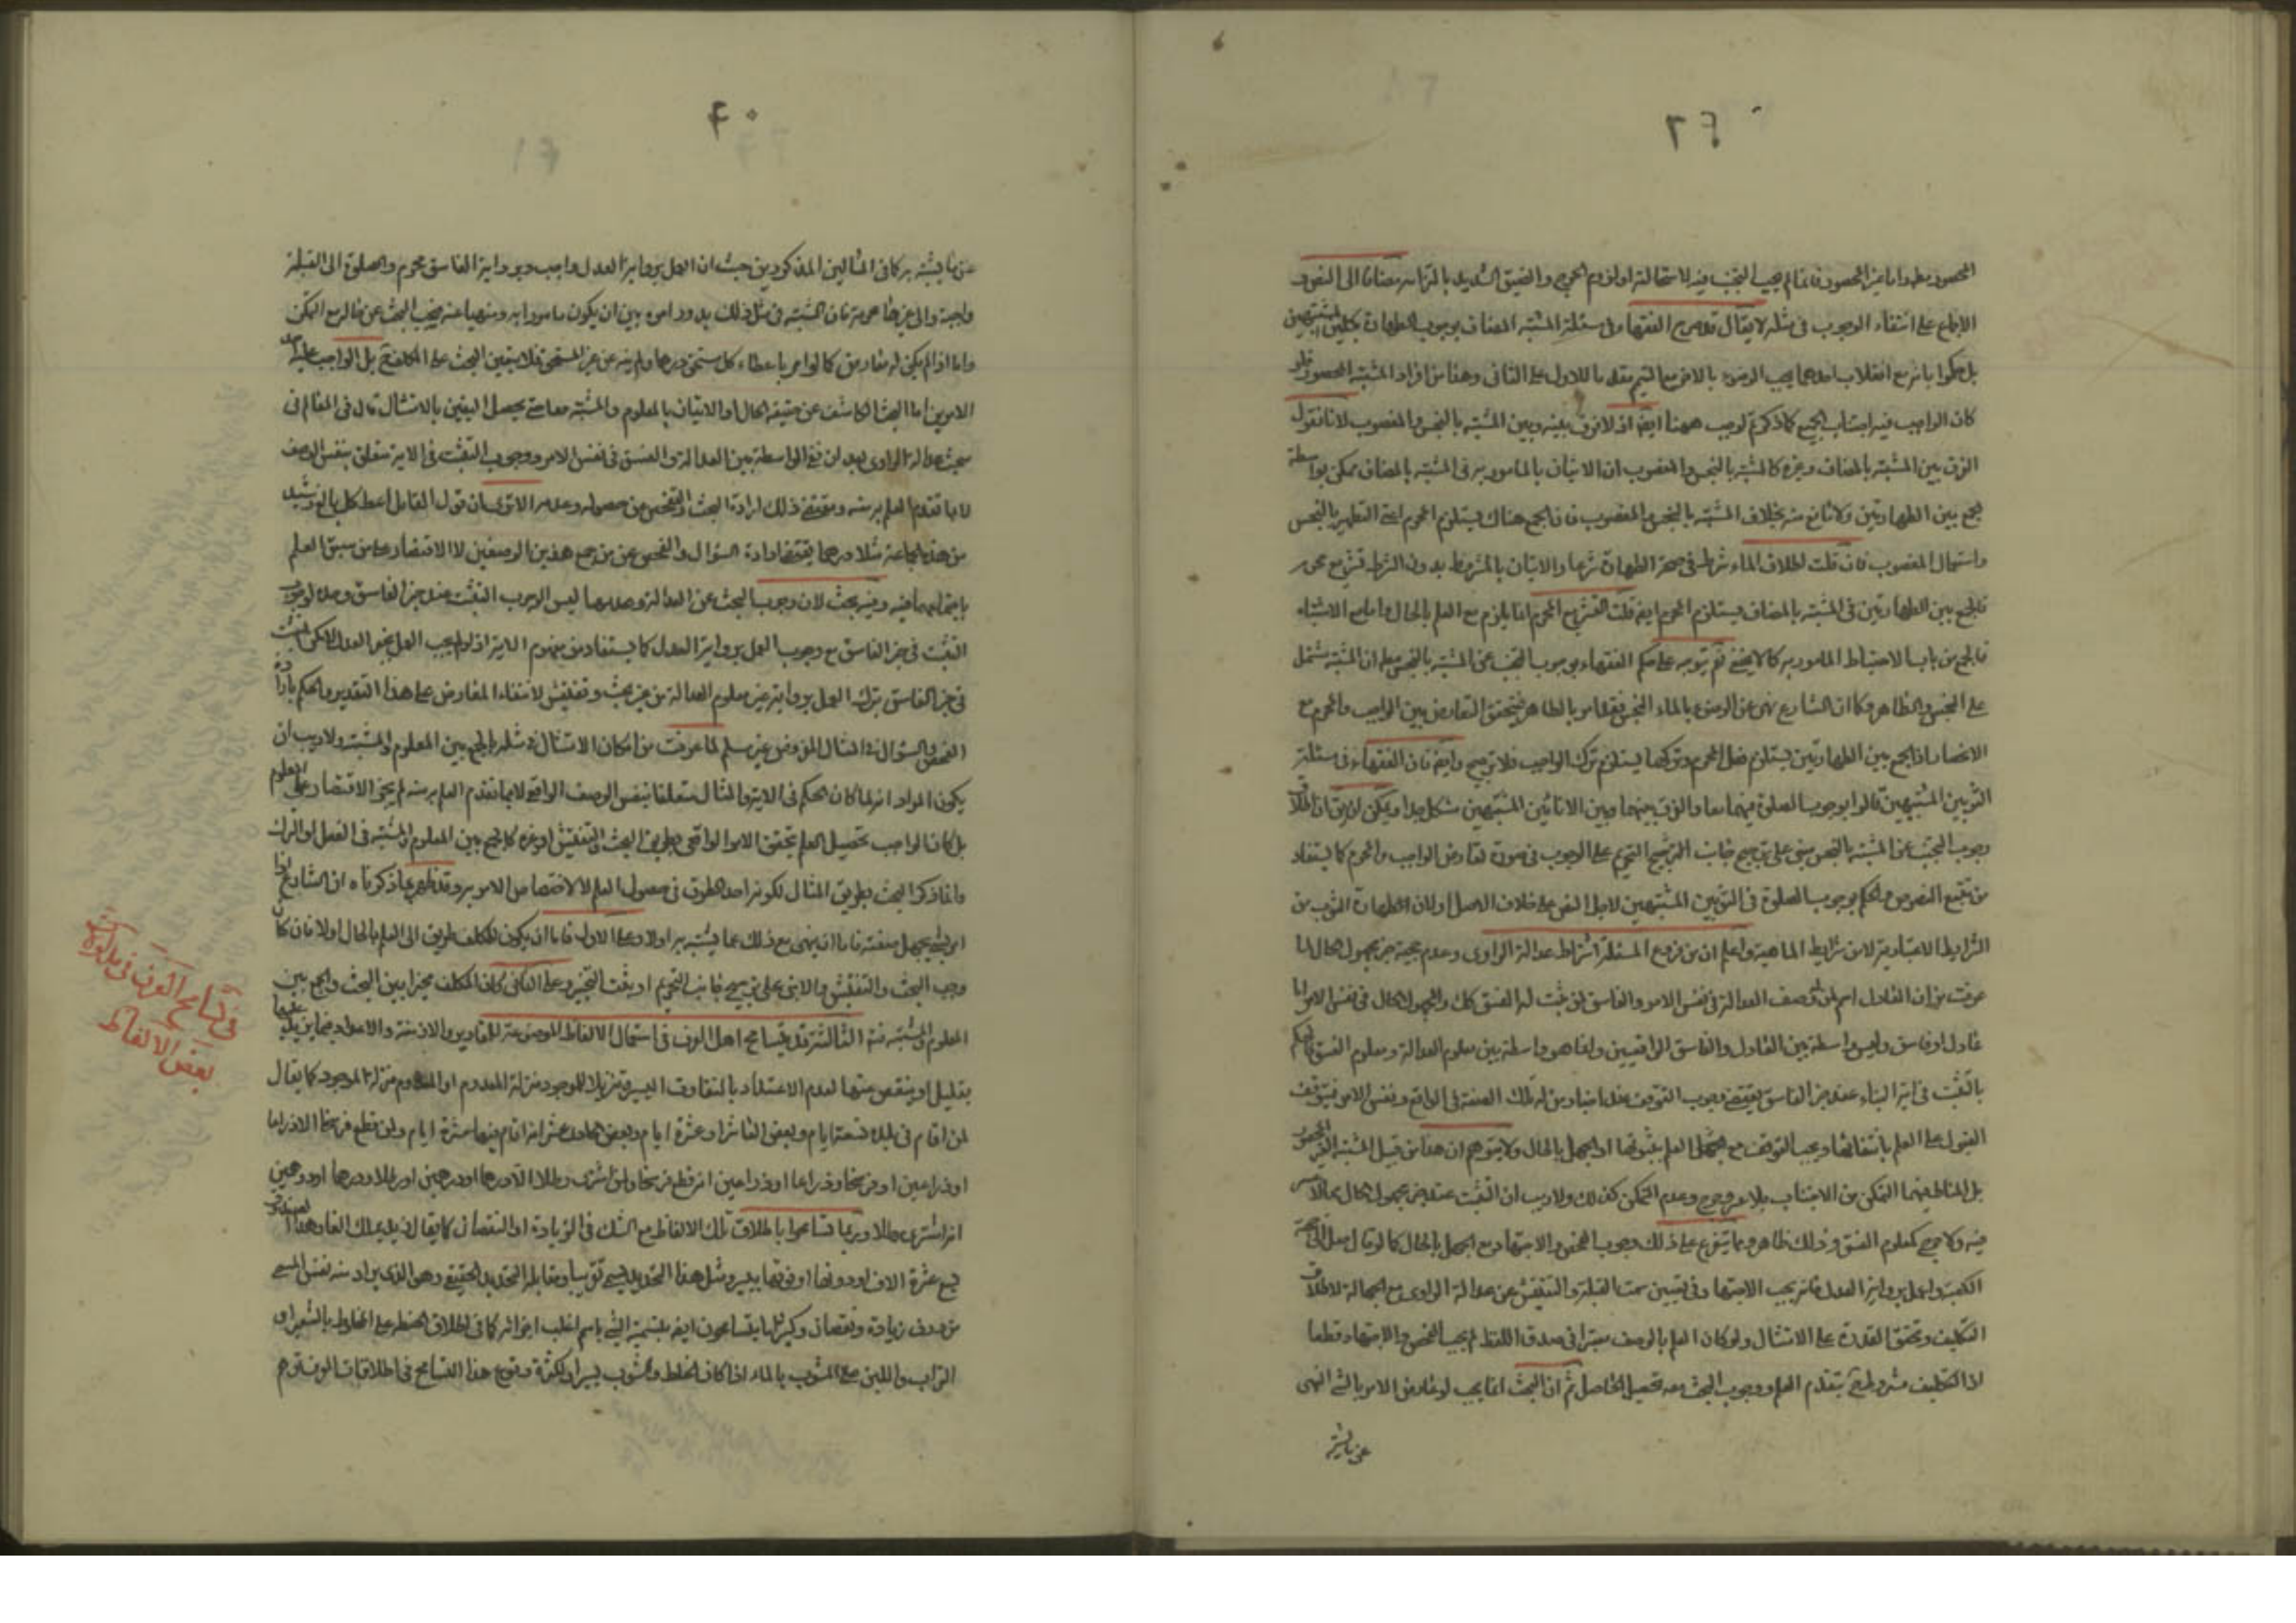 المحصور مطلقا واما غير المحصور فانما لم يجب التجنب فيه لاستحالته او لزوم الحرج والضيق الشديد بالتزامه مضافا الى النصوص
الاجماع على انتفاء الوجوب في مثله لا يقال قد صرح الفقهاء في مسئلة المشتبه المضاف بوجوب الطهارة بكل من المشتبهين
بل حكموا بانه مع انقلاب احدهما يجب الوضوء بالاخر مع التيمم مقدما للاول على الثاني وهذا من افراد المشتبه المحصور فلو
كان الواجب فيه اجتناب الجميع كما ذكرتم لوجب ههنا ايضا اذ لا فرق بينه وبين المشتبه بالنجس والمغصوب لانا نقول
الفرق بين المشتبه بالمضاف وغيره كالمشتبه بالنجس والمغصوب ان الاتيان بالمامور به في المشتبه بالمضاف ممكن بواسطة
الجمع بين الطهارتين ولا مانع منه بخلاف المشتبه بالنجس والمغصوب فان الجمع هناك يستلزم المحرم اعني التطهير بالنجس
واستعمال المغصوب فان قلت اطلاق الماء شرط في صحة الطهارة شرعا والاتيان بالمشروط بدون الشرط تشريع محرم
فالجمع بين الطهارتين في المشتبه بالمضاف يستلزم المحرم ايضا قلت التشريع المحرم انما يلزم مع العلم بالحال واما مع الاشتباه
فالجمع من باب الاحتياط المامور به كما لا يخفى نعم يتوجه على حكم الفقهاء بوجوب التجنب عن المشتبه بالنجس مطلقا ان المشتبه مشتمل
على النجس والطاهر وكما ان الشارع نهى عن الوضوء بالماء النجس فقد امر بالطاهر فيتحقق التعارض بين الواجب والمحرم مع
الانحصار اذ الجمع بين الطهارتين يستلزم فعل المحرم وتركها يستلزم ترك الواجب فلا ترجيح وايضا فان الفقهاء في مسئلة
الثوبين المشتبهين قالوا بوجوب الصلوة فيهما معا والفرق بينهما وبين الانائين المشتبهين مشكل جدا ويمكن ان يق ان اطلاق
وجوب التجنب عن المشتبه بالنجس مبني على ترجيح جانب التحريم على الوجوب في صورة تعارض الواجب والمحرم كما يستفاد
من تتبع النصوص والحكم بوجوب الصلوة في الثوبين المشتبهين لاجل النص على خلاف الاصل اولان الطهارة الثوب من
الشرايط الاعتبارية لا من شرايط الماهية واعلم ان من فروع المسئلة اشتراط عدالة الراوي وعدم حجية خبر مجهول الحال لما
عرفت من ان العادل اسم لمن له وصف العدالة في نفس الامر والفاسق لمن ثبت له الفسق كك والمجهول الحال في نفس الامر اما
عادل او فاسق وليس واسطة بين العادل والفاسق الواقعيين وانما هو واسطة بين معلوم العدالة ومعلوم الفسق فالحكم
بالتثبت في اية النباء عند خبر الفاسق يقتضي وجوب التوقف عند اخبار من له تلك الصفة في الواقع ونفس الامر فيتوقف
القبول على العلم بانتفائها ويجب التوقف مع العلم بثبوتها او الجهل بالحال ولا يتوهم ان هذا من قبيل المشتبه الغير المحصور
بل المناط فيهما التمكن من الاجتناب بلا عسر وحرج وعدم التمكن كذلك ولا ريب ان التثبت عند خبر مجهول الحال مما لا عسر
فيه ولا حرج كمعلوم الفسق وذلك ظاهر ومما يتفرع على ذلك وجوب الفحص والاجتهاد مع الجهل بالحال كما لو قال صل الى جهة
الكعبة واعمل برواية العدل فانه يجب الاجتهاد في تعيين سمت القبلة والتفتيش عن عدالة الراوي مع الجهالة لاطلاق
التكليف وتحقق القدرة على الامتثال ولو كان العلم بالوصف معتبرا في صدق اللفظ لم يجب الفحص والاجتهاد قطعا
اذ التكليف مشروط ح بتقدم العلم ووجوب البحث معه تحصيل الحاصل ثم ان البحث انما يجب لو عارض الامر بالشئ النهي
عن ما يشتبه
٤٠
عن ما يشتبه به كما في المثالين المذكورين حيث ان العمل برواية العدل واجب وبرواية الفاسق محرم والصلوة الى القبلة
واجبة والى غيرها محرمة فان المشتبه في مثل ذلك يدور امره بين ان يكون مامورا به ومنهيا عنه فيجب البحث عن حاله مع التمكن
واما اذا لم يكن له معارض كما لو امر باعطاء كل مستحق درهما ولم ينه عن غير المستحق فلا يتعين البحث على المكلف ح بل الواجب عليه احد
الامرين اما البحث الكاشف عن حقيقة الحال او الاتيان بالمعلوم والمشتبه معا حتى يحصل اليقين بالامتثال قال في المعالم في
مبحث عدالة الراوي بعد ان نفى الواسطة بين العدالة والفسق في نفس الامر ووجوب التثبت في الاية متعلق بنفس الوصف
لا بما تقدم العلم به منه ومقتضى ذلك ارادة البحث والتفحص من حصوله وعدمه الا ترى ان قول القايل اعط كل بالغ رشيد
من هذه الجماعة مثلا درهما يقتضي ارادة السؤال والفحص عن من جمع هذين الوصفين لا الاقتصار على من سبق العلم
باجتماعهما فيه وفيه بحث لان وجوب البحث عن العدالة وعدمها ليس لوجوب التثبت عند خبر الفاسق وحده بل لوجوب
التثبت في خبر الفاسق مع وجوب العمل برواية العدل كما يستفاد من مفهوم الاية اذ لو لم يجب العمل بخبر العدل لامكن التثبت
في خبر الفاسق بترك العمل برواية غير معلوم العدالة من غير بحث وتفتيش لانتفاء المعارض على هذا التقدير والحكم بارادة
الفحص والسؤال في المثال المفروض غير مسلم لما عرفت من امكان الامتثال في مثله بالجمع بين المعلوم والمشتبه ولا ريب ان
يكون المراد انه لما كان الحكم في الاية والمثال متعلقا بنفس الوصف الواقعي لا بما تقدم العلم به منه لم يجز الاقتصار على المعلوم
بل كان الواجب تحصيل العلم بتحقق الامر الواقعي بطريق البحث والتفتيش او غيره كالجمع بين المعلوم والمشتبه في الفعل او الترك
وانما ذكر البحث بطريق المثال لكونه احد الطرق في حصول العلم لا لاختصاص الامر به وقد ظهر مما ذكرناه ان الشارع اذا
امر بشئ مجهل صفته فاما ان ينهى مع ذلك عما يشتبه به اولا وعلى الاول فاما ان يكون للمكلف طريق الى العلم بالحال اولا فان كان
وجب البحث والتفتيش والا بنى على ترجيح جانب التحريم او يثبت التخيير وعلى الثاني كان المكلف مخيرا بين البحث والجمع بين
المعلوم والمشتبه منه الثالثة قد يتسامح اهل العرف في استعمال الالفاظ الموضوعة للمقادير والازمنة والاعداد فيما يزيد عليها
بقليل او ينقص عنها لعدم الاعتداد بالتفاوت اليسير تنزيلا للموجود منزلة المعدوم او المعدوم منزلة الموجود كما يقال
لمن اقام في بلدة تسعة ايام وبعض العاشر او عشرة ايام وبعض الحادي عشر انه اقام فيها عشرة ايام ولمن قطع فرسخا الا ذراعا
او ذراعين او فرسخا وذراعا او ذراعين انه قطع فرسخا ولمن اشترى رطلا الا درهما او درهمين او رطلا ودرهما او درهمين
انه اشترى رطلا وربما تسامحوا باطلاق تلك الالفاظ مع الشك في الزيادة او النقصان كما يقال ان زيد يملك الفا وهذا العسكر
يبلغ عشرة الاف او دونها او فوقها بيسير ومثل هذا التحديد يسمى تقريبا ومقابله التحديد الحقيقي وهو الذي يراد منه نفس المسمى
من دون زيادة ونقصان وكثيرا ما يتسامحون ايضا بتسمية الشئ باسم اغلب اجزائه كما في اطلاق الحنطة على المخلوط بالشعير او
التراب واللبن على المشوب بالماء اذا كان الخلط والشوب يسيرا ولكثرة وقوع هذا التسامح في اطلاقات العرف توهم
في تسامح العرف في
بعض الالفاظ